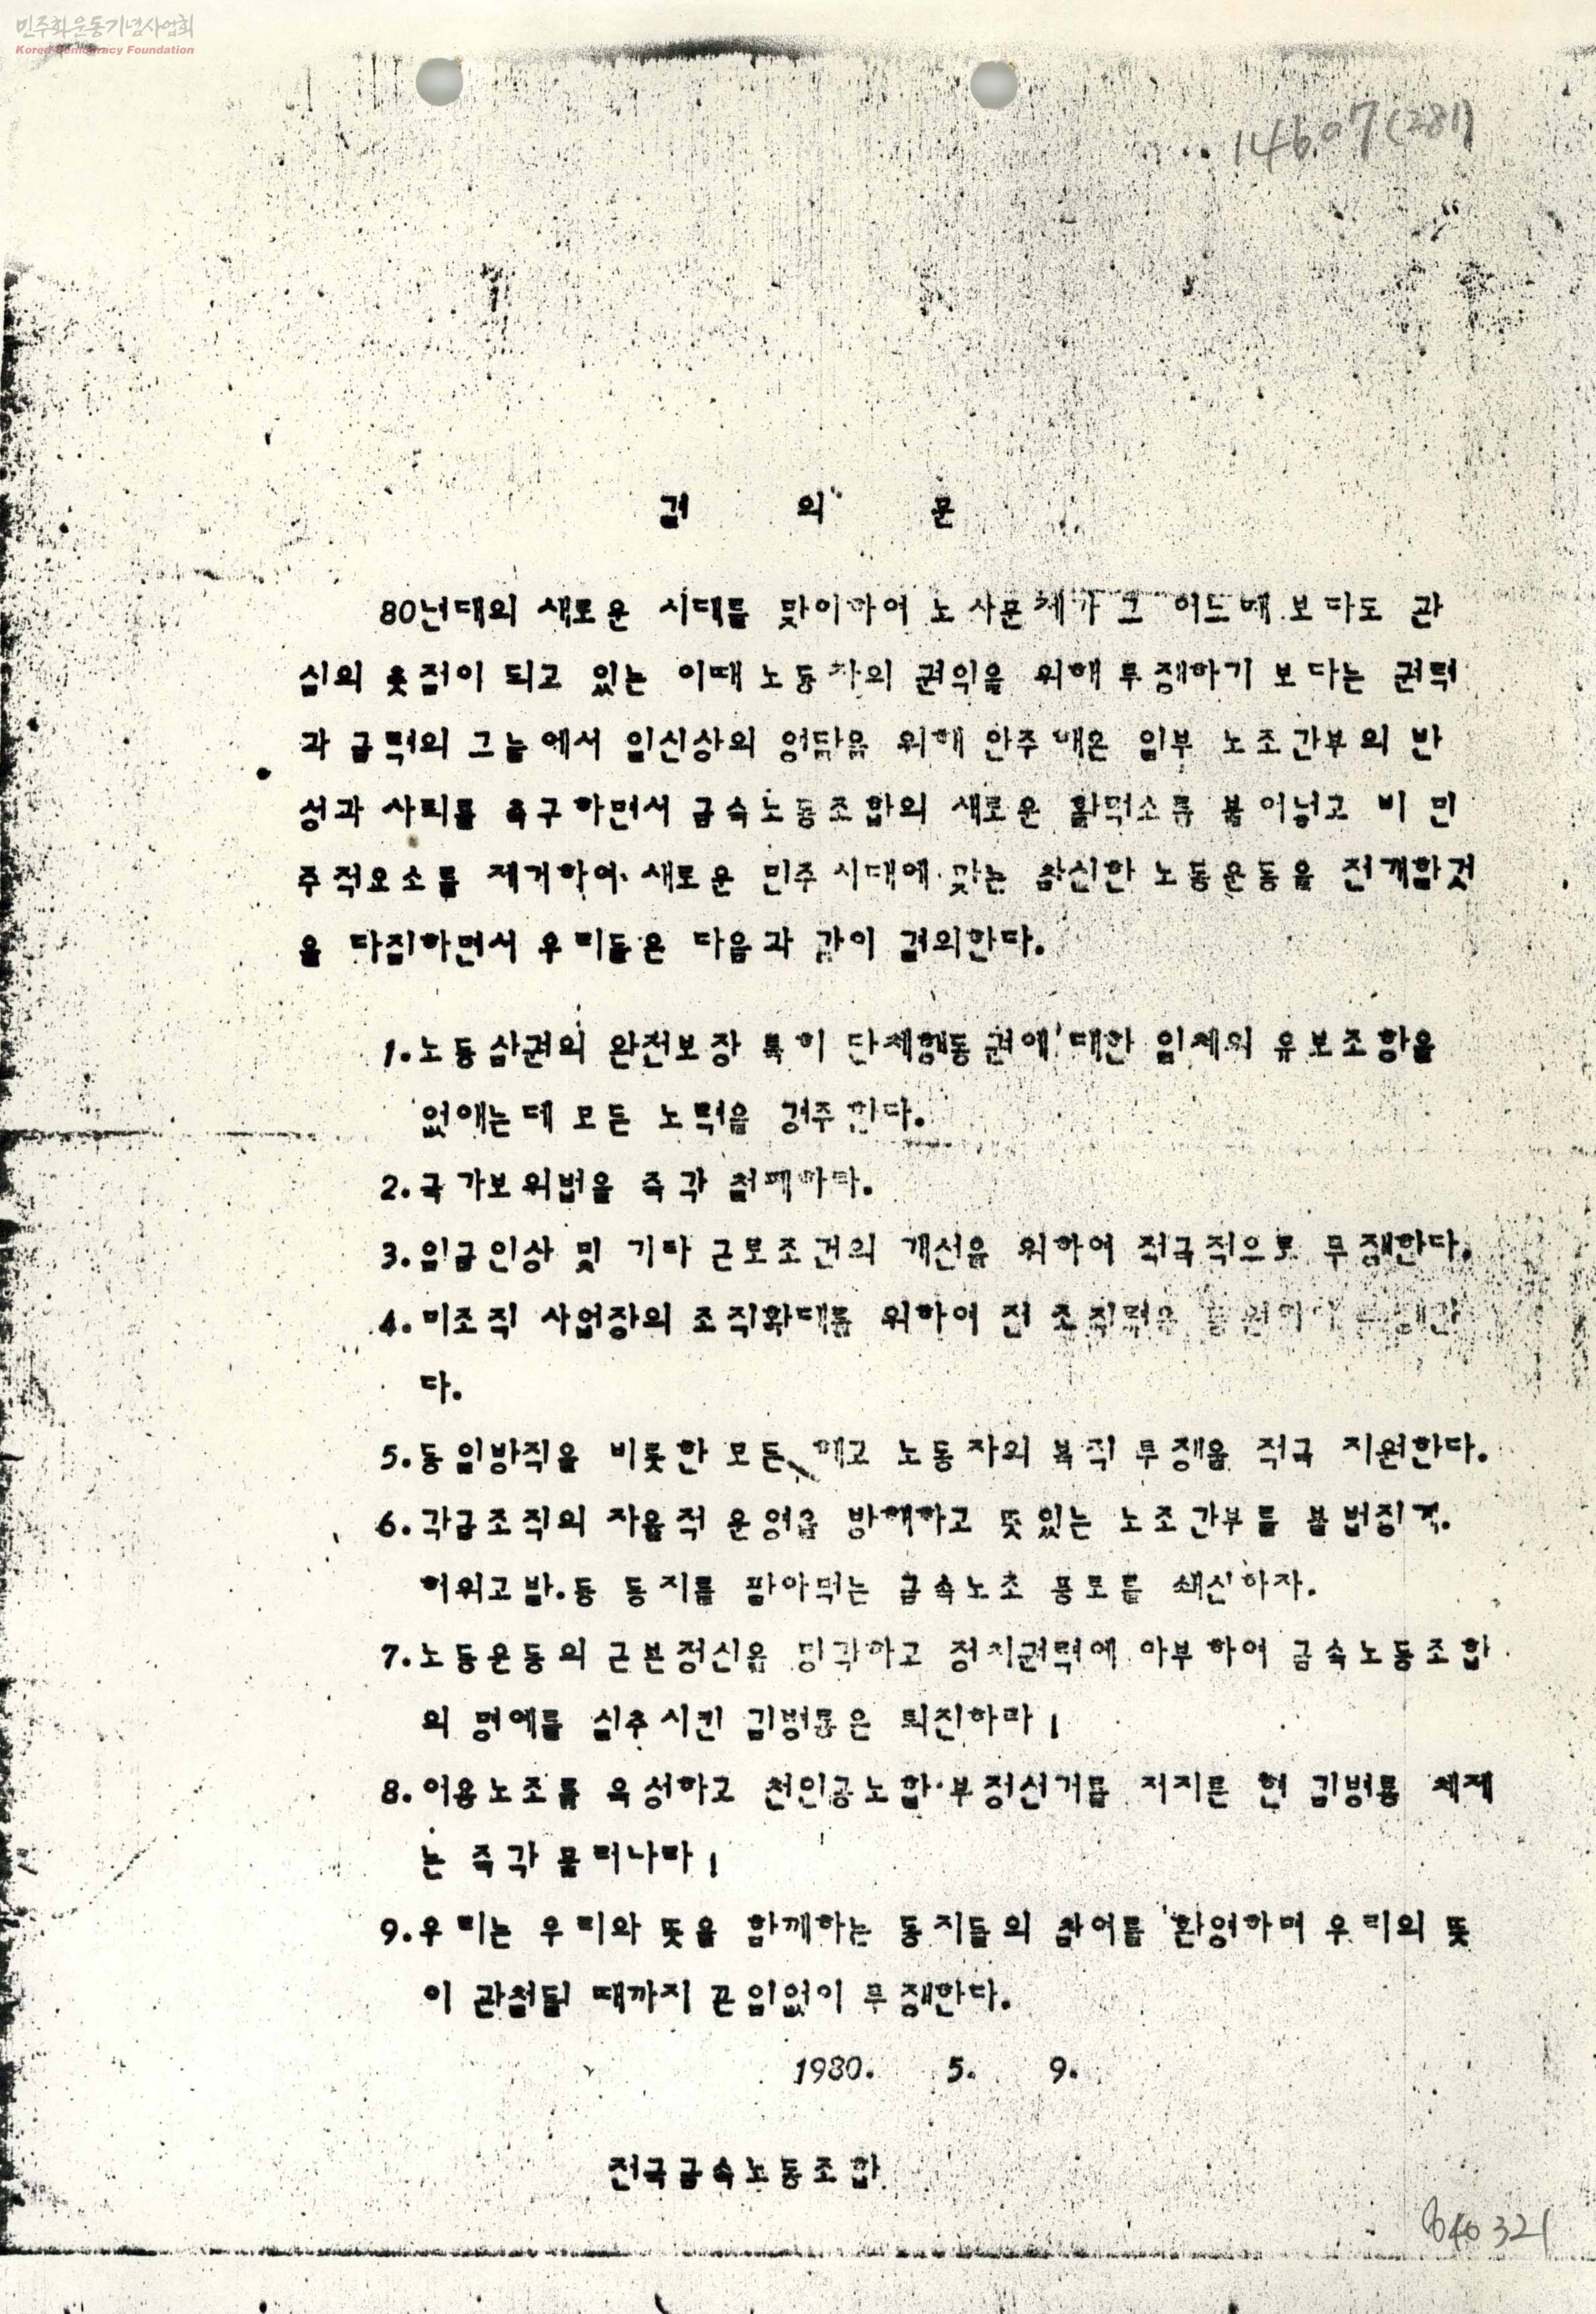 민주화운동기념사업회
Korea Democracy Foundation
146.07(281)
결 의 문
80년대의 새로운 시대를 맞이하여 노사문제가 그 어느때 보다도 관
심의 촛점이 되고 있는 이때 노동자의 권익을 위해 투쟁하기 보다는 권력
과 금력의 그늘에서 일신상의 영달을 위해 안주해온 일부 노조간부의 반
성과 사퇴를 촉구하면서 금속노동조합의 새로운 활력소를 불어넣고 비 민
주적요소를 제거하여 새로운 민주 시대에 맞는 참신한 노동운동을 전개할것
을 다짐하면서 우리들은 다음과 같이 결의한다.
1. 노동삼권의 완전보장 특히 단체행동권에 대한 일체의 유보조항을
없애는데 모든 노력을 경주한다.
2. 국가보위법을 즉각 철폐하라.
3. 임금인상 및 기타 근로조건의 개선을 위하여 적극적으로 투쟁한다.
4. 미조직 사업장의 조직확대를 위하여 전 조직력을 동원하여 투쟁한
다.
5. 동일방직을 비롯한 모든 해고 노동자의 복직 투쟁을 적극 지원한다.
6. 각급조직의 자율적 운영을 방해하고 뜻있는 노조간부를 불법징계.
허위고발.등 동지를 팔아먹는 금속노조 풍토를 쇄신하자.
7. 노동운동의 근본정신을 망각하고 정치권력에 아부하여 금속노동조합
의 명예를 실추시킨 김병룡은 퇴진하라!
8. 어용노조를 육성하고 천인공노할 부정선거를 저지른 현 김병룡 체제
는 즉각 물러나라!
9. 우리는 우리와 뜻을 함께하는 동지들의 참여를 환영하며 우리의 뜻
이 관철될 때까지 끈임없이 투쟁한다.
1980. 5. 9.
전국금속노동조합
840321